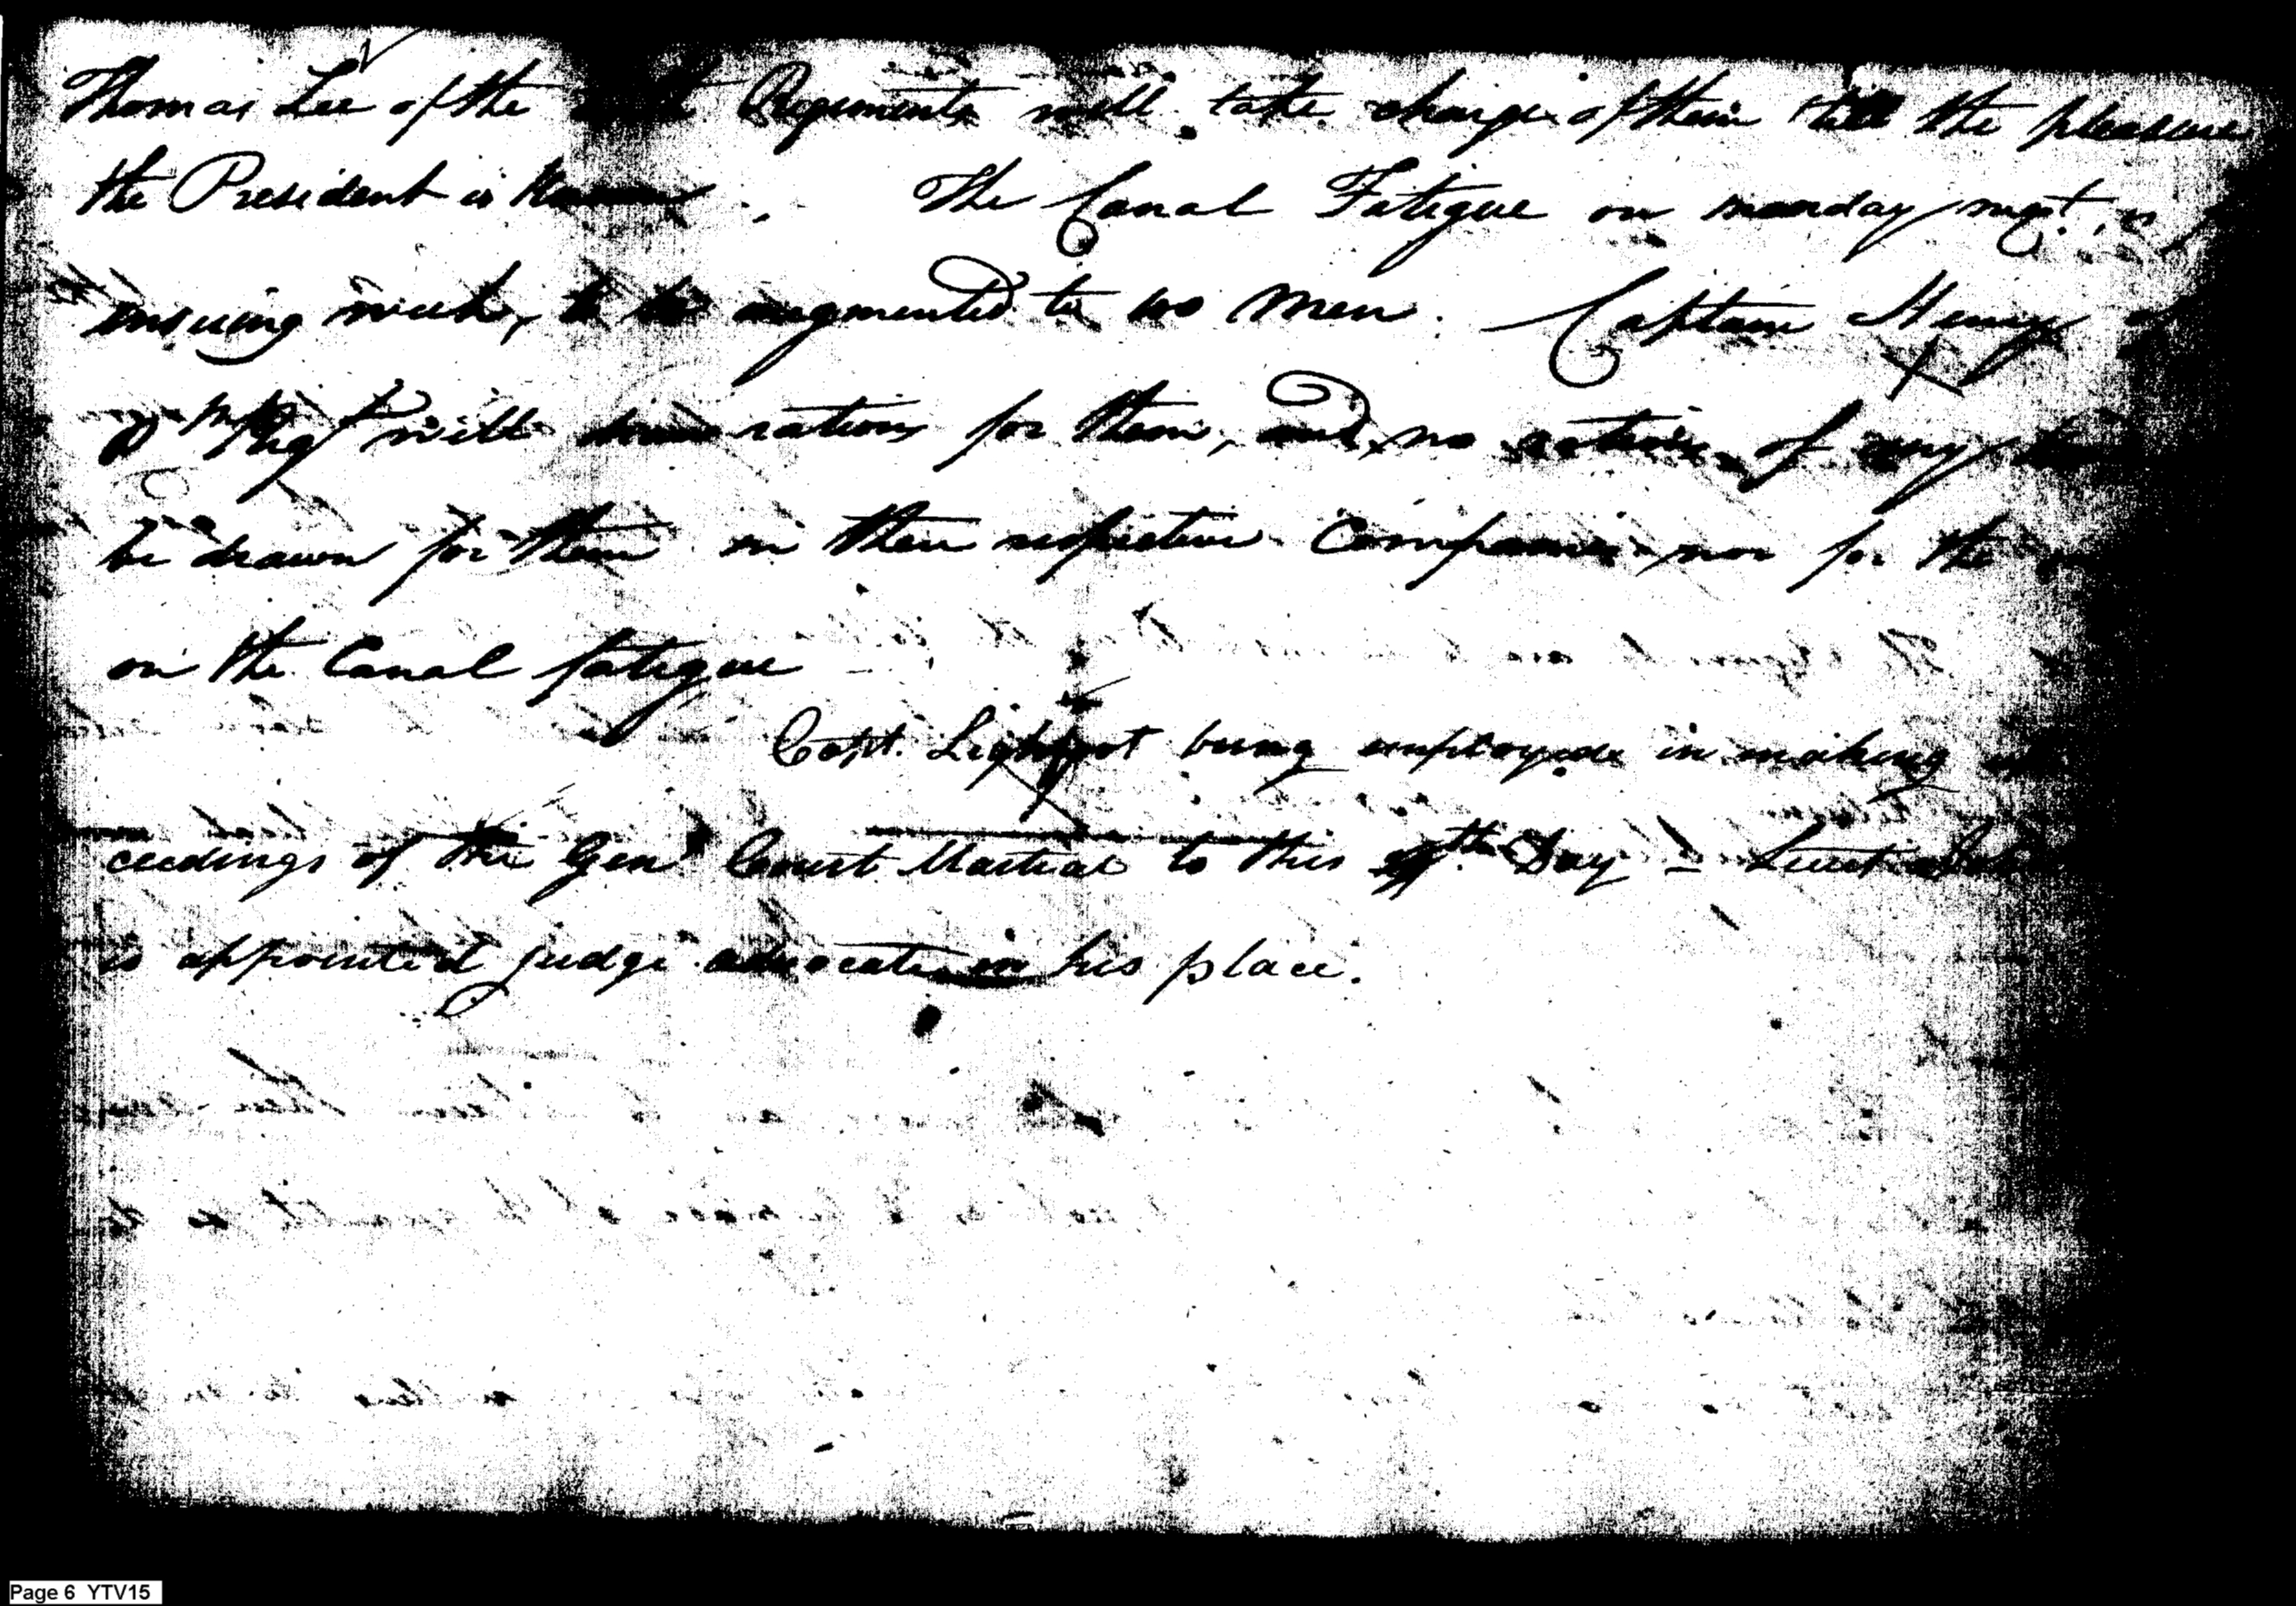 Thomas Lee of the Regiments will take charge of them till the pleasure
the President is
The Canal Fatigue on monday next is
ensuing week, to be augmented to 100 men. Captain Henry
Regt will draw rations for them, and no rations of any
be drawn for them in their respective Companies nor for the
on the Canal fatigue
Capt. Lightfoot being employed in making
ceedings of the Genl Court Martial to this Day - Lieut
is appointed judge advocate in his place.
Page 6 YTV15